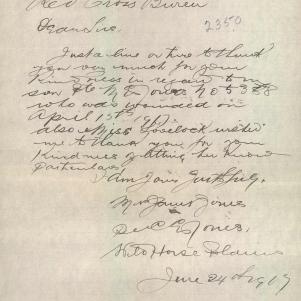 Red Cross Bureau
2350
Dear Sir.
Just a line or two to thank
you very much for your
Kindness in regard to my
son Pte Jones No 5388
who was wounded on
April 1st 1917
also Miss Lovelock wished
me to thank you for your
Kindness of letting her know
particulars
I Am Yours Faithfully.
Mr James Jones
Jones.
White Horse Plains
June 24th 1917